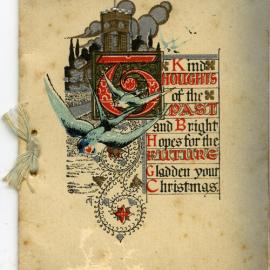 Kind
THOUGHTS
of the
PAST
and Bright
Hopes for the
FUTURE
Gladden your
Christmas.